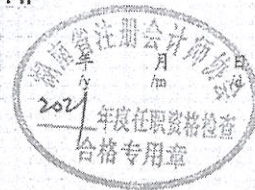 湖南省注册会计师协会
年 月 日
/y /m /d
2021 年度任职资格检查
合格专用章